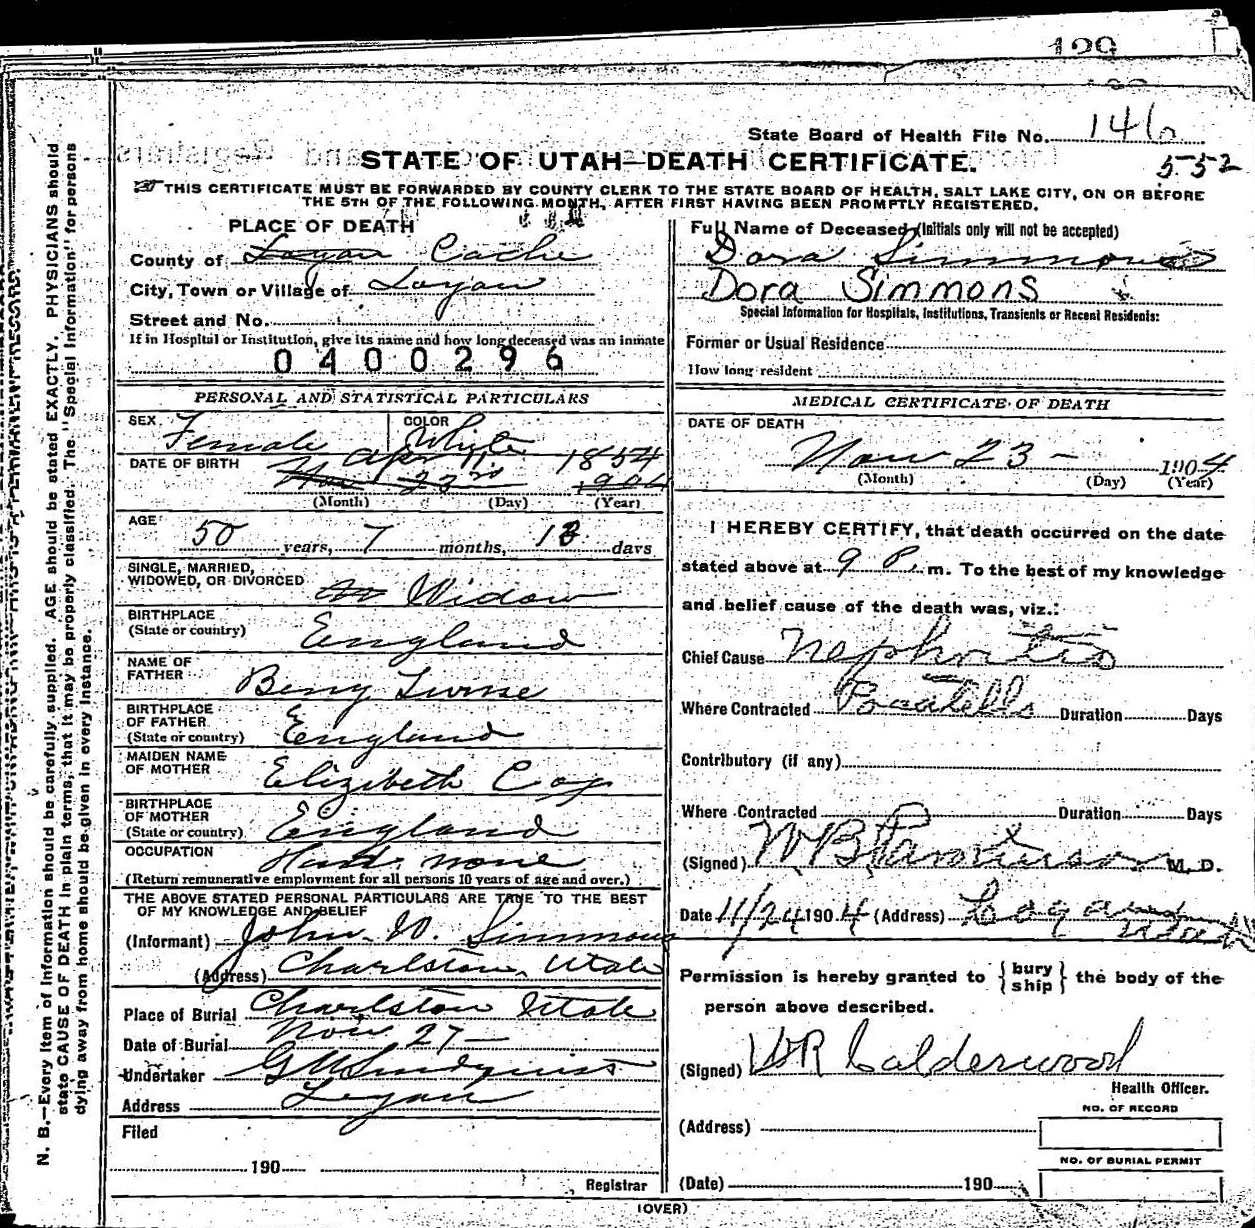 129
State Board of Health File No. 146
552
STATE OF UTAH—DEATH CERTIFICATE.
THIS CERTIFICATE MUST BE FORWARDED BY COUNTY CLERK TO THE STATE BOARD OF HEALTH, SALT LAKE CITY, ON OR BEFORE
THE 5TH OF THE FOLLOWING MONTH, AFTER FIRST HAVING BEEN PROMPTLY REGISTERED.
N. B.—Every item of information should be carefully supplied. AGE should be stated EXACTLY. PHYSICIANS should
state CAUSE OF DEATH in plain terms, that it may be properly classified. The "Special Information" for persons
dying away from home should be given in every instance.
PLACE OF DEATH
County of Logan Cache
City, Town or Village of Logan
Street and No.
If in Hospital or Institution, give its name and how long deceased was an inmate
0400296
PERSONAL AND STATISTICAL PARTICULARS
SEX Female
COLOR Whyte
DATE OF BIRTH Apr 11 1854
Nov 23rd 1904
(Month) (Day) (Year)
AGE
50 years, 7 months, 13 days
SINGLE, MARRIED,
WIDOWED, OR DIVORCED Widow
BIRTHPLACE
(State or country) England
NAME OF
FATHER Benj
BIRTHPLACE
OF FATHER
(State or country) England
MAIDEN NAME
OF MOTHER Elizibeth Cox
BIRTHPLACE
OF MOTHER
(State or country) England
OCCUPATION none
(Return remunerative employment for all persons 10 years of age and over.)
THE ABOVE STATED PERSONAL PARTICULARS ARE TRUE TO THE BEST
OF MY KNOWLEDGE AND BELIEF
(Informant) John W. Simmons
(Address) Charlston, Utah
Place of Burial Charlston Utah
Date of Burial Nov 27—
Undertaker G W Lindquist
Address Logan
Filed
190
Registrar
Full Name of Deceased (Initials only will not be accepted)
Dora Simmons
Dora Simmons
Special Information for Hospitals, Institutions, Transients or Recent Residents:
Former or Usual Residence
How long resident
MEDICAL CERTIFICATE OF DEATH
DATE OF DEATH
Nov 23 — 1904
(Month) (Day) (Year)
I HEREBY CERTIFY, that death occurred on the date
stated above at 9 P. m. To the best of my knowledge
and belief cause of the death was, viz.:
Chief Cause Nephritis
Where Contracted Pocatello Duration Days
Contributory (if any)
Where Contracted Duration Days
(Signed) W B Parkinson M. D.
Date 11/24 1904 (Address) Logan
Utah
Permission is hereby granted to {bury
ship} the body of the
person above described.
(Signed) WR Calderwood
Health Officer.
NO. OF RECORD
(Address)
NO. OF BURIAL PERMIT
(Date) 190
(OVER)